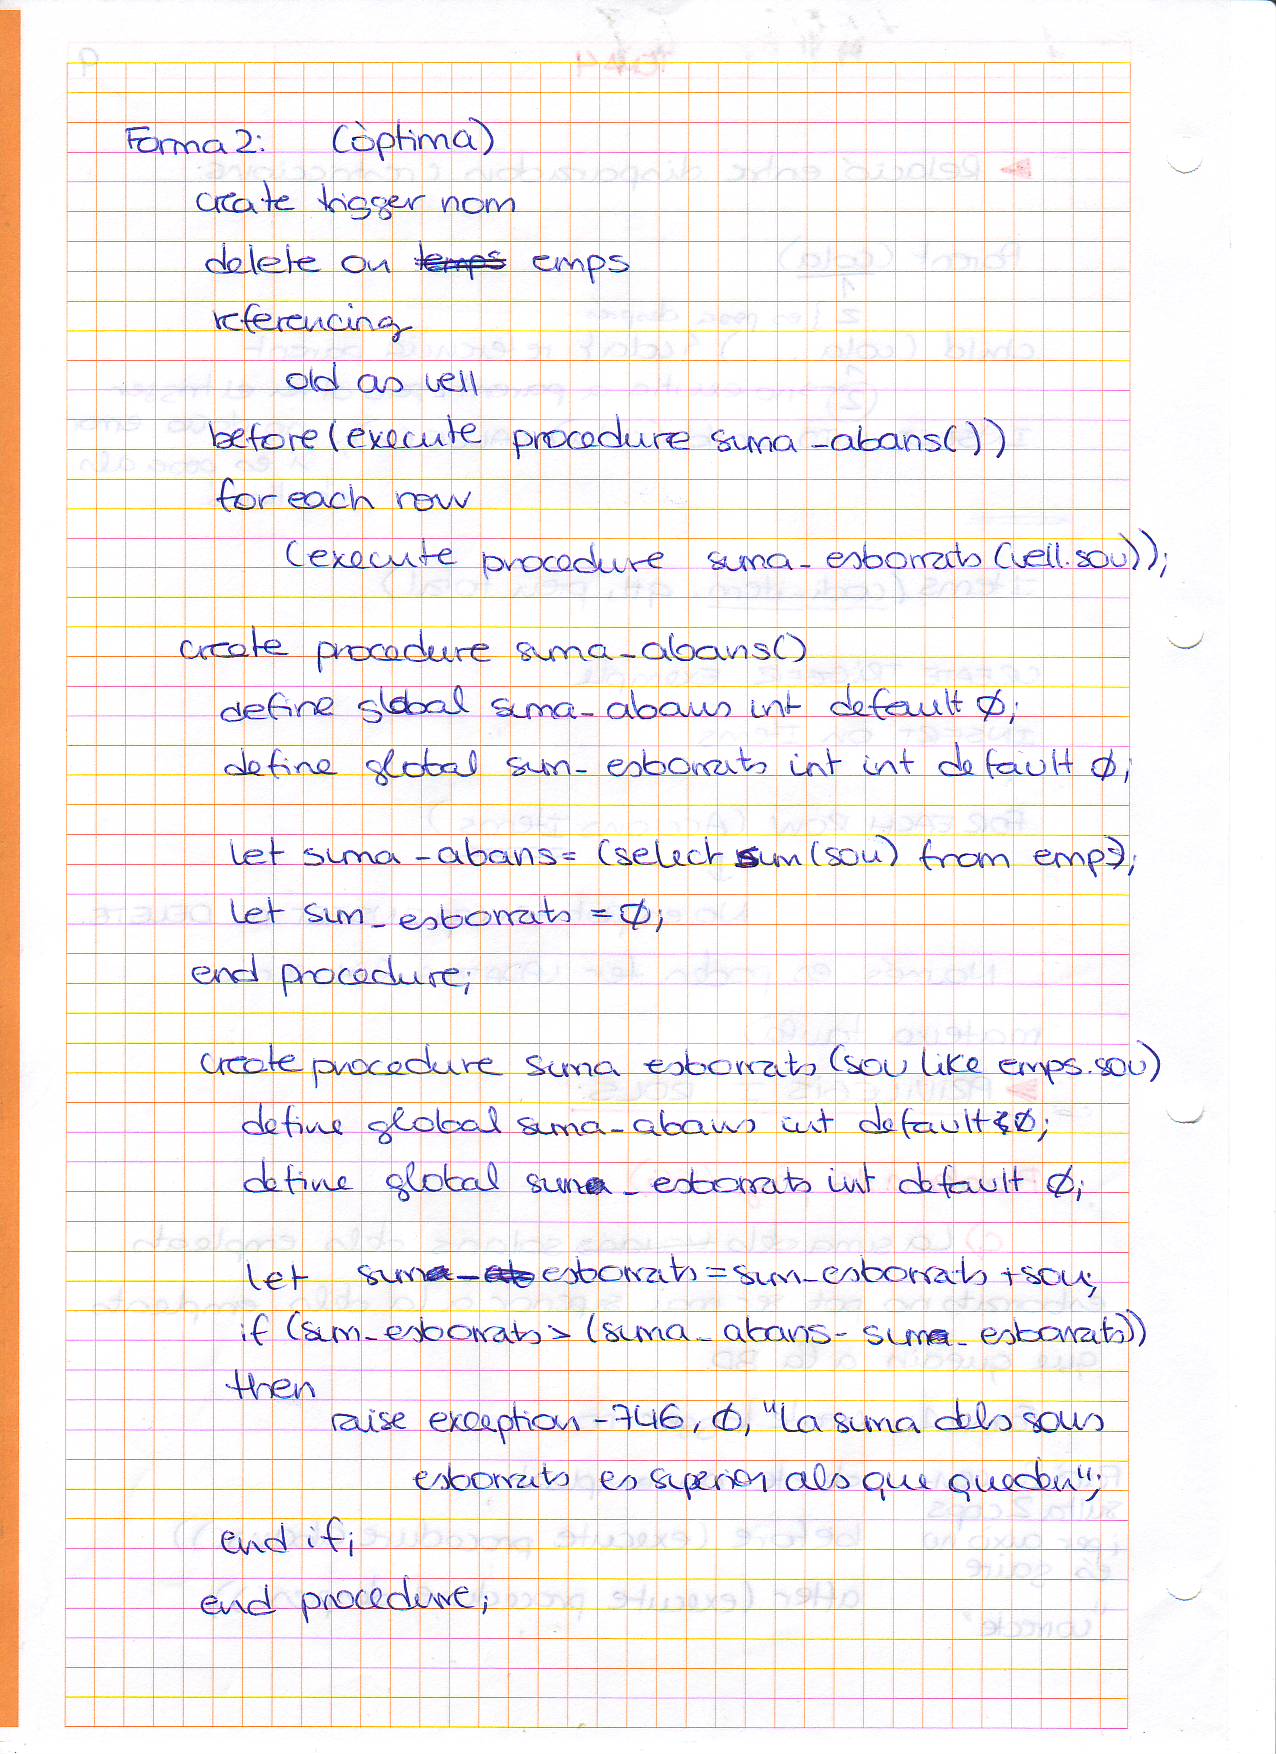 Forma 2: (òptima)
create trigger nom
delete on emps
referencing
old as vell
before (execute procedure suma-abans())
for each row
(execute procedure suma-esborrats (vell.sou));
create procedure suma-abans()
define global suma-abans int default ø;
define global sum-esborrats int int default ø;
let suma-abans = (select sum(sou) from emps);
let sum-esborrats = ø;
end procedure;
create procedure suma esborrats (sou like emps.sou)
define global suma-abans int default ø;
define global suma-esborrats int default ø;
let suma-esborrats = sum-esborrats + sou;
if (sum-esborrats > (suma-abans - suma-esborrats))
then
raise exception -746, ø, "La suma dels sous
esborrats es superior als que queden";
end if;
end procedure;